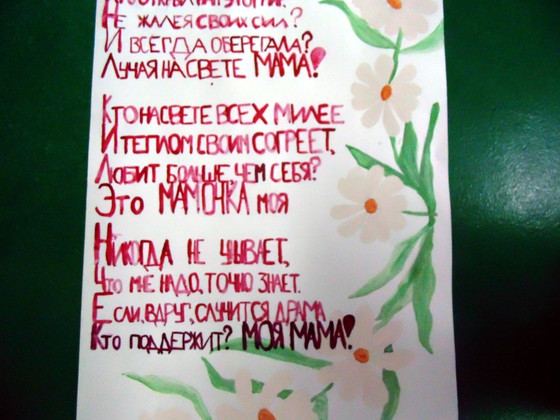 Не жалея своих сил?
И всегда оберегала?
Лучая на свете МАМА!
Кто на свете всех милее
И теплом своим согреет,
Любит больше, чем себя?
Это МАМОЧКА моя
Никогда не унывает,
Что мне надо, точно знает.
Если, вдруг, случится драма
Кто поддержит? МОЯ МАМА!